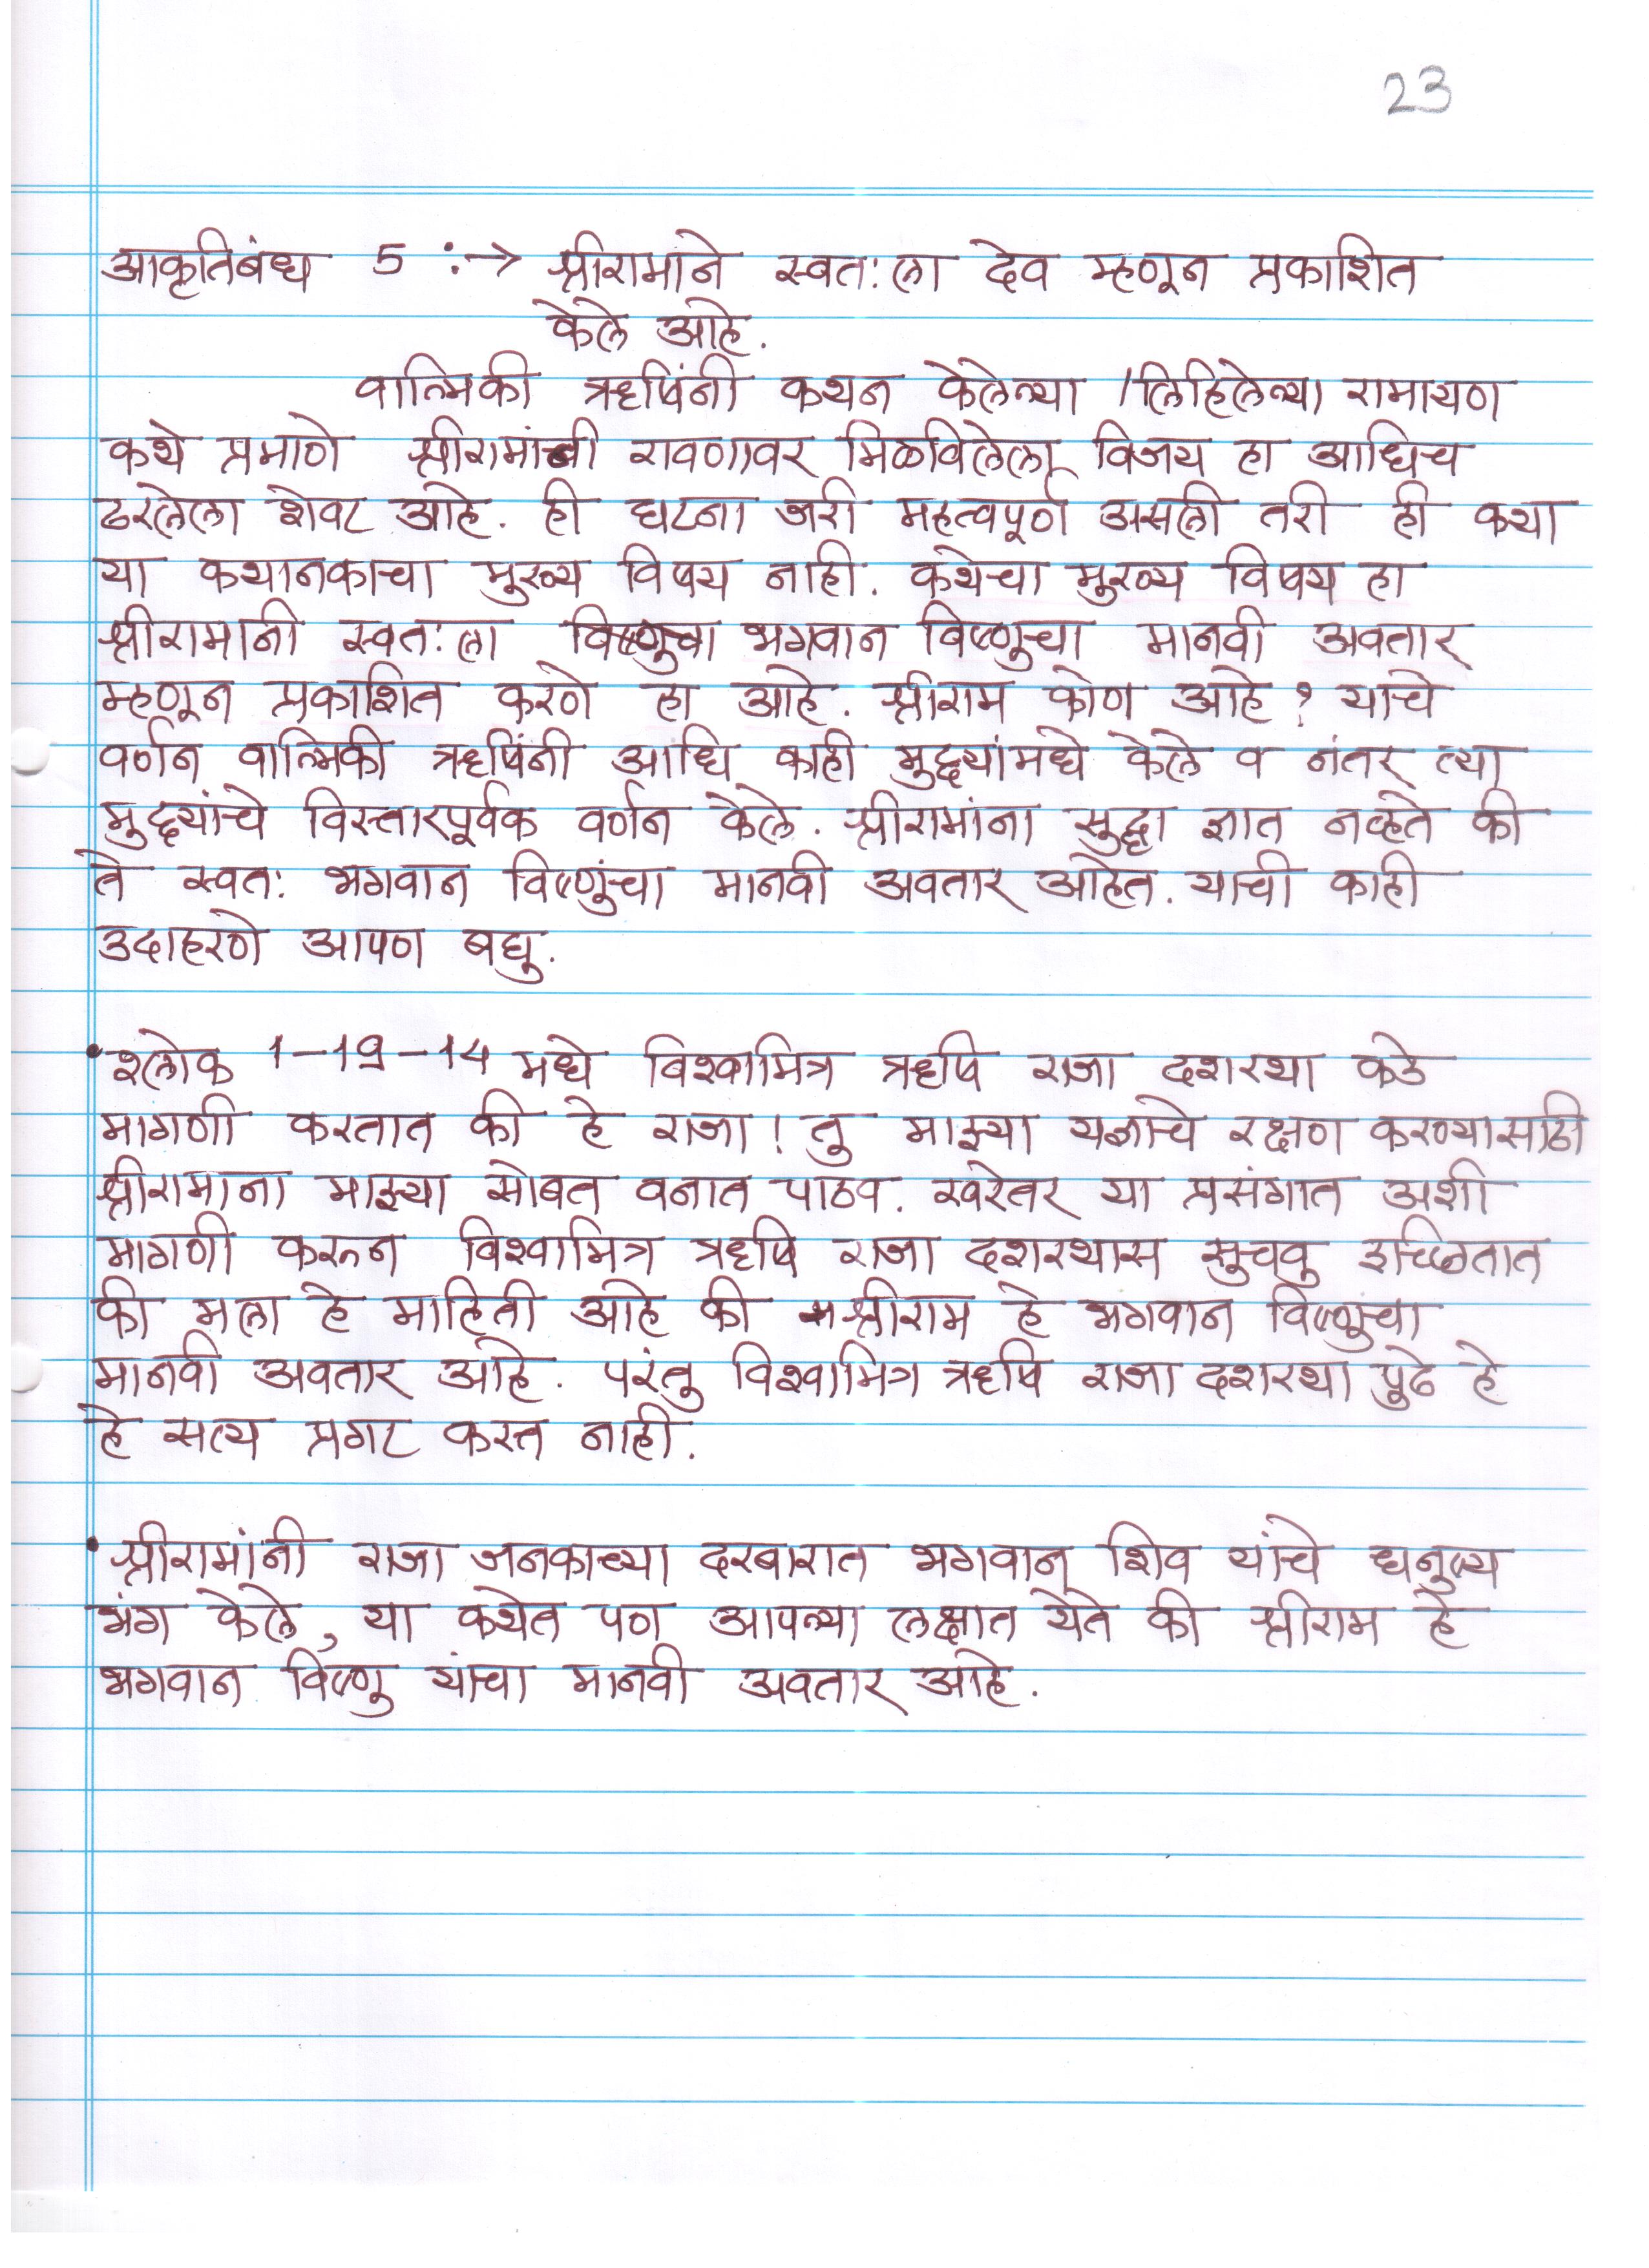 23
आकृतिबंध 5 :→ श्रीरामाने स्वत:ला देव म्हणून प्रकाशित
केले आहे.
वाल्मिकी ऋषिंनी कथन केलेल्या /लिहिलेल्या रामायण
कथे प्रमाणे श्रीरामांनी रावणावर मिळविलेला विजय हा आधिच
ठरलेला शेवट आहे. ही घटना जरी महत्वपूर्ण असली तरी ही कथा
या कथानकाचा मुख्य विषय नाही. कथेचा मुख्य विषय हा
श्रीरामानी स्वत:ला भगवान विष्णुचा मानवी अवतार
म्हणून प्रकाशित करणे हा आहे. श्रीराम कोण आहे? याचे
वर्णन वाल्मिकी ऋषिंनी आधि काही मुद्द्यांमधे केले व नंतर त्या
मुद्द्यांचे विस्तारपूर्वक वर्णन केले. श्रीरामांना सुद्धा ज्ञात नव्हते की
ते स्वत: भगवान विष्णुंचा मानवी अवतार आहेत. याची काही
उदाहरणे आपण बघु.
• श्लोक 1-19-14 मधे विश्वामित्र ऋषि राजा दशरथा कडे
मागणी करतात की हे राजा! तु माझ्या यज्ञाचे रक्षण करण्यासाठी
श्रीरामाना माझ्या सोबत वनात पाठव. खरेतर या प्रसंगात अशी
मागणी करून विश्वामित्र ऋषि राजा दशरथास सुचवु इच्छितात
की मला हे माहिती आहे की श्रीराम हे भगवान विष्णुचा
मानवी अवतार आहे. परंतु विश्वामित्र ऋषि राजा दशरथा पुढे हे
हे सत्य प्रगट करत नाही.
• श्रीरामांनी राजा जनकाच्या दरबारात भगवान शिव यांचे धनुष्य
भंग केले, या कथेत पण आपल्या लक्षात येते की श्रीराम हे
भगवान विष्णु यांचा मानवी अवतार आहे.